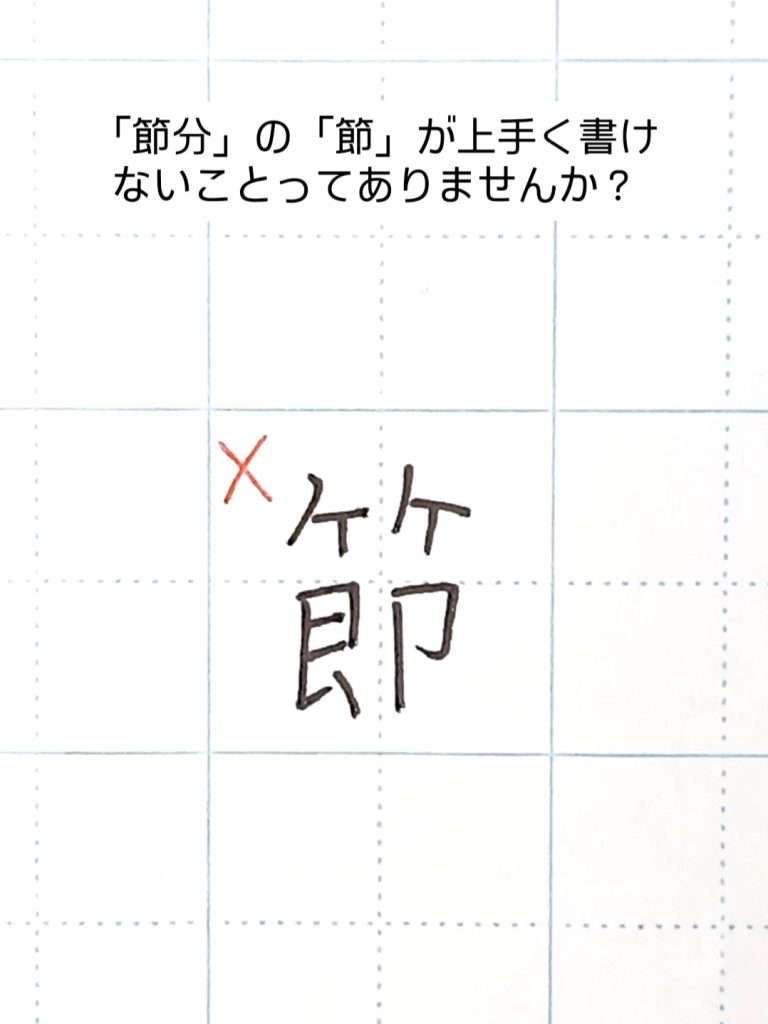 「節分」の「節」が上手く書け
ないことってありませんか？
×
節